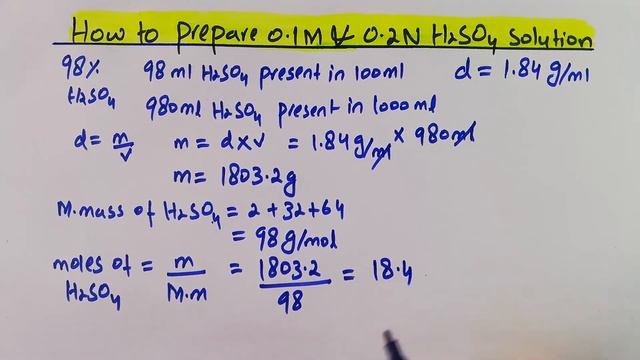 How to prepare 0.1M & 0.2N H2SO4 solution
98% 98 ml H2SO4 present in 100ml d = 1.84 g/ml
H2SO4 980ml H2SO4 present in 1000 ml
d = m/v m = d x v = 1.84 g/ml x 980ml
m = 1803.2g
M.mass of H2SO4 = 2 + 32 + 64
= 98 g/mol
moles of H2SO4 = m/M.m = 1803.2/98 = 18.4